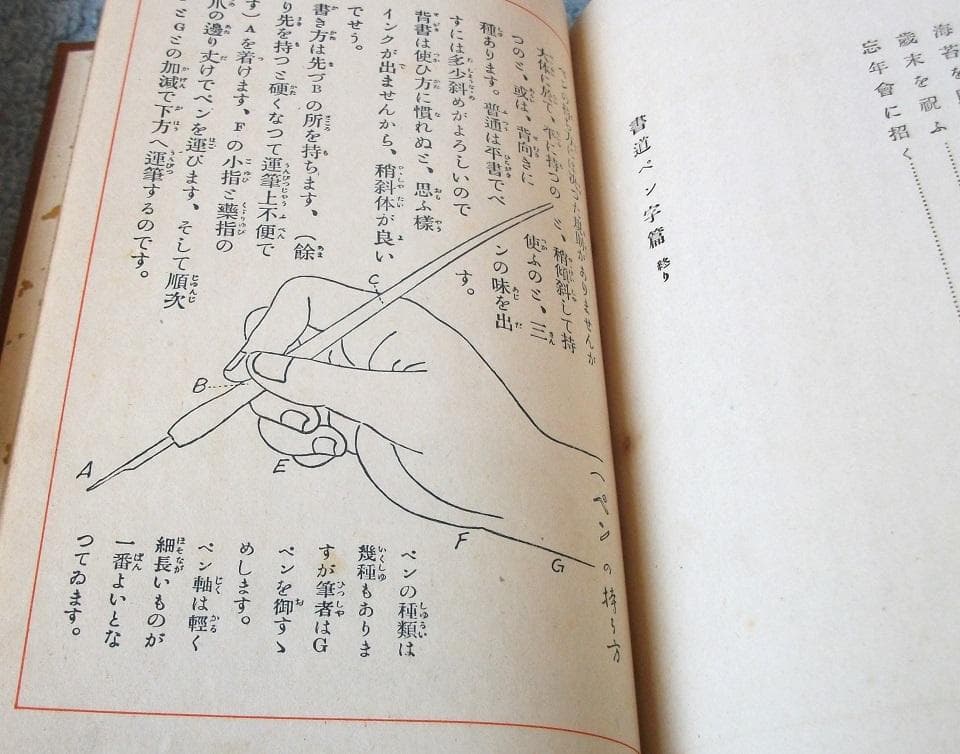 海苔を
歳末を祝ふ
忘年會に招く
書道ペン字篇 終り
ペンの持ち方
がありませんが
大体に於て、平に持つのと、稍傾斜して持
つのと、或は、背向きに使ふのと、三
種あります。普通は平書でペンの味を出
すには多少斜めがよろしいのです。
背書は使ひ方に慣れぬと、思ふ樣
インクが出ませんから、稍斜体が良い
でせう。
書き方は先づBの所を持ちます、（餘
り先を持つと硬くなつて運筆上不便で
す）Aを着けます、Fの小指と藥指の
爪の邊り丈けでペンを運びます、そして順次
とGとの加減で下方へ運筆するのです。
C
B
A
E
F
G
ペンの種類は
幾種もありま
すが筆者はG
ペンを御すゝ
めします。
ペン軸は輕く
細長いものが
一番よいとな
つてゐます。